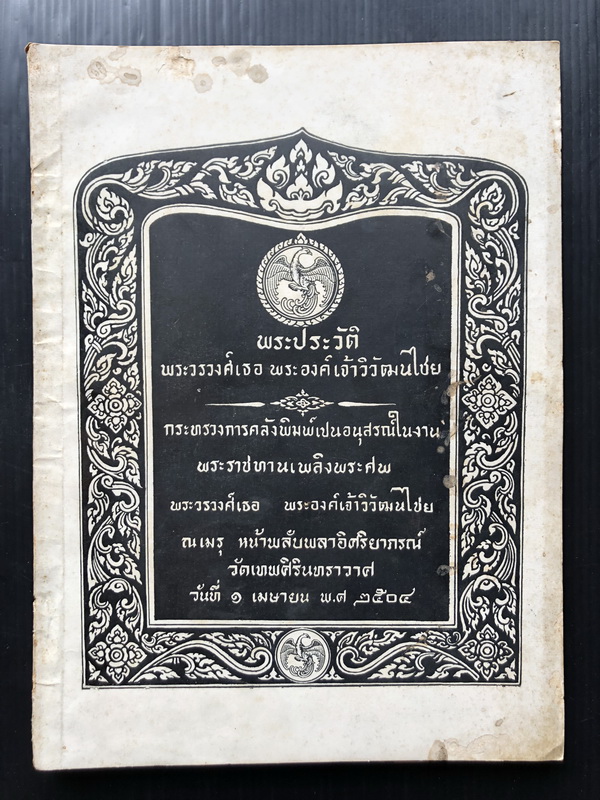 พระประวัติ
พระวรวงศ์เธอ พระองค์เจ้าวิวัฒนไชย
กระทรวงการคลังพิมพ์เปนอนุสรณ์ในงาน
พระราชทานเพลิงพระศพ
พระวรวงศ์เธอ พระองค์เจ้าวิวัฒนไชย
ณเมรุ หน้าพลับพลาอิศริยาภรณ์
วัดเทพศิรินทราวาศ
วันที่ ๑ เมษายน พ.ศ ๒๕๐๔